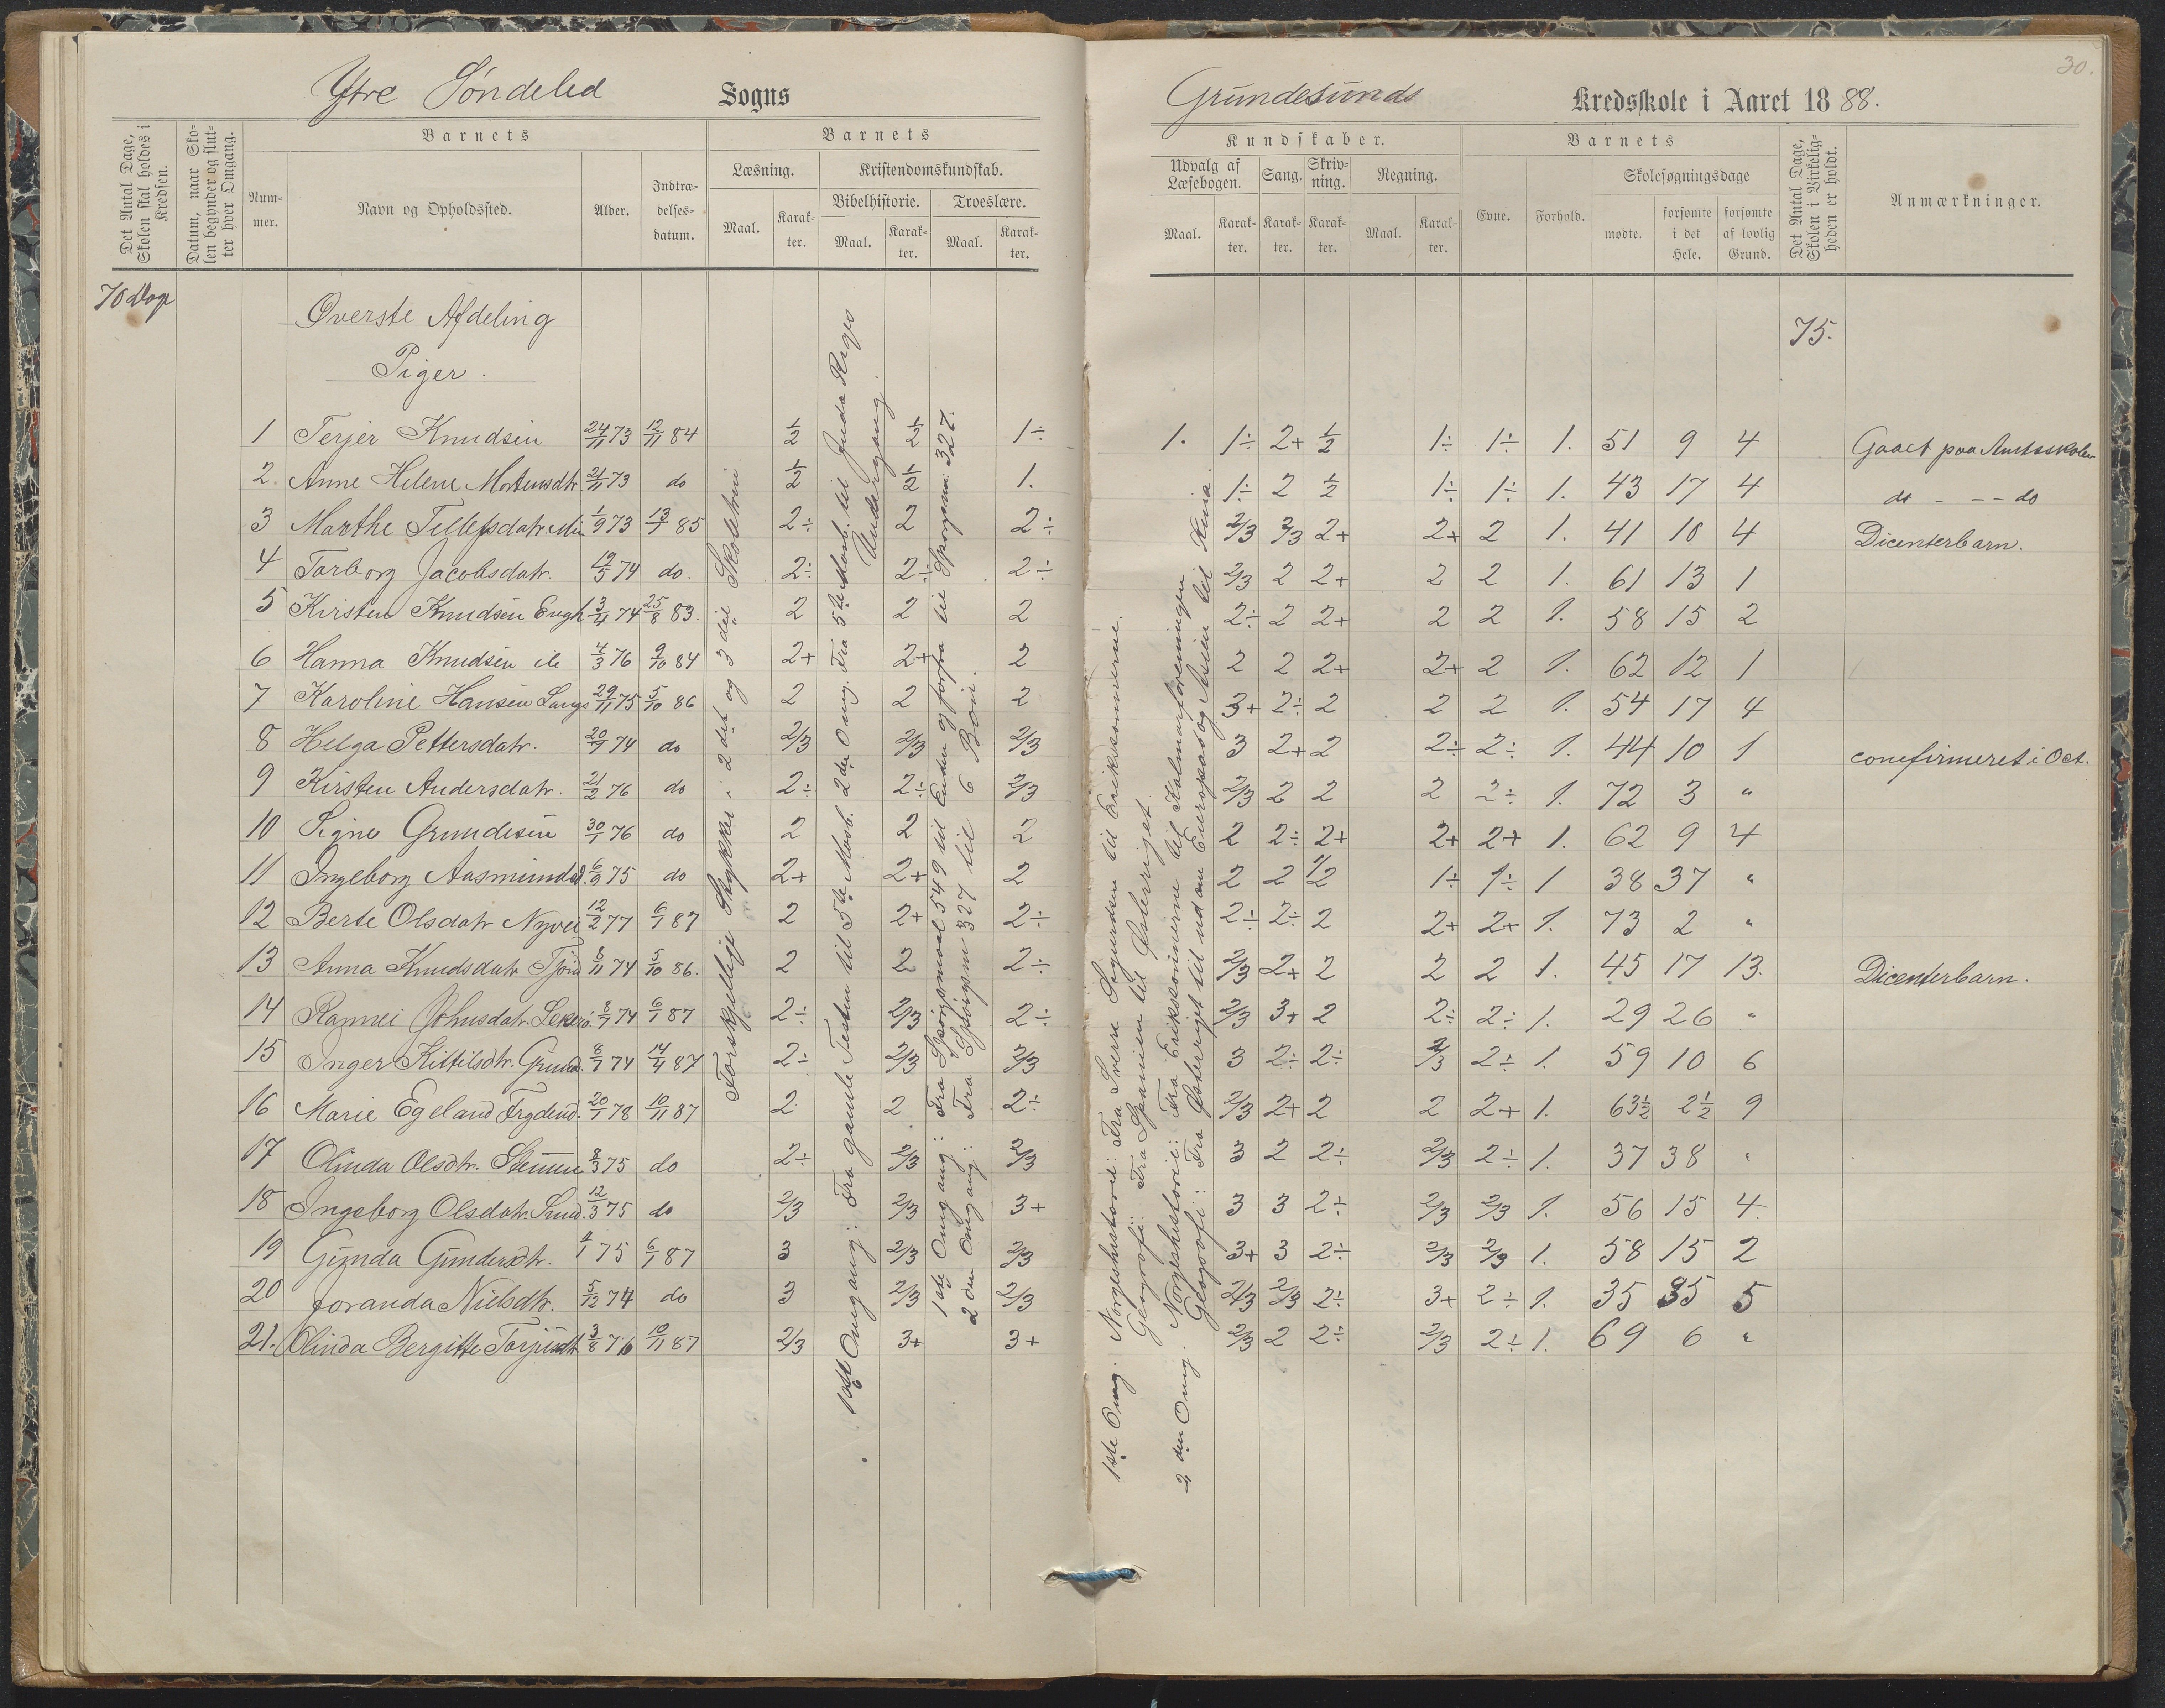 Ytre Söndeled Sogns
Det Antal Dage, Skolen skal holdes i Kredsen.
Datum, naar Skolen begynder og slutter hver Omgang.
Barnets
Nummer.
Navn og Opholdssted.
Alder.
Indtrædelsesdatum.
Barnets
Læsning.
Kristendomskundskab.
Bibelhistorie. Troeslære.
Maal. Karakter. Maal. Karakter. Maal. Karakter.
70 Dage
Øverste Afdeling
Piger.
1 Terjer Knudsen 24/11 73 12/11 84 1/2 1/2 1÷
2 Anne Helene Mortensdtr. 21/11 73 do 1/2 1/2 1.
3 Marthe Tellefsdatr 1/9 73 13/1 85 2÷ 2 2÷
4 Torborg Jacobsdatr. 19/5 74 do. 2÷ 2÷ 2÷
5 Kirsten Knudsen Eugh 3/4 74 25/8 83. 2 2 2
6 Hanna Knudsen 4/3 76 9/10 84 2+ 2+ 2
7 Karoline Hansen Langs 29/11 75 5/10 86 2 2 2
8 Helga Pettersdatr. 20/9 74 do 2/3 2/3 2/3
9 Kirsten Andersdatr. 21/2 76 do 2÷ 2÷ 2/3
10 Signe Grundesen 30/1 76 do 2 2 2
11 Ingeborg Aasmundsd. 6/9 75 do 2+ 2+ 2
12 Berte Olsdatr Nyvei 12/2 77 6/1 87 2 2+ 2÷
13 Anna Knudsdatr 6/11 74 5/10 86. 2 2 2÷
14 Ramei Johnsdatr. 8/7 74 6/1 87 2÷ 2/3 2÷
15 Inger Kittilsdtr. Grund. 8/7 74 14/4 87 2÷ 2/3 2/3
16 Marie Egeland Frydend. 20/1 78 10/11 87 2 2 2÷
17 Olinda Olsdtr. 8/3 75 do 2÷ 2/3 2/3
18 Ingeborg Olsdatr. Sund. 12/3 75 do 2/3 2/3 3+
19 Gunda Gundersdtr. 4/1 75 6/1 87 3 2/3 2/3
20 Joranda Nielsdtr. 5/12 74 do 3 2/3 2/3
21. Olinda Bergitte Torjusdtr 3/8 76 10/11 87 2/3 3+ 3+
Forskjellige Stykker i 2det og 3die Skoletrin.
1ste Omgang: Fra gamle Testm til 5te Moseb. 2den Omg. Fra 5te Moseb. til Juda Riges
Undergang.
1ste Omgang: Fra Spørgsmaal 549 til Enden og forfra til Spørgsm. 327.
2den Omgang: Fra Spörgsm 327 til 6 Bön.
30.
Grundesunds Kredsskole i Aaret 1888.
Kundskaber.
Udvalg af Læsebogen. Sang. Skrivning. Regning.
Maal. Karakter. Karakter. Karakter. Maal. Karakter.
Barnets
Evne. Forhold.
Skolesøgningsdage
mødte. forsømte i det Hele. forsømte af lovlig Grund.
Det Antal Dage, Skolen i Virkeligheden er holdt.
Anmærkninger.
75.
1. 1÷ 2+ 1/2 1÷ 1÷ 1. 51 9 4 Gaaet paa Amtsskolen
1÷ 2 1/2 1÷ 1÷ 1. 43 17 4 do - -- do
2/3 2/3 2+ 2+ 2 1. 41 10 4 Dicenterbarn.
2/3 2 2+ 2 2 1. 61 13 1
2÷ 2 2+ 2 2 1. 58 15 2
2 2 2+ 2+ 2 1. 62 12 1
3+ 2÷ 2 2 2 1. 54 17 4
3 2+ 2 2÷ 2÷ 1. 44 10 1 confirmeret i Oct.
2/3 2 2 2 2÷ 1. 72 3 "
2 2÷ 2+ 2+ 2+ 1. 62 9 4
2 2 1/2 1÷ 1÷ 1 38 37 "
2÷ 2÷ 2 2+ 2+ 1. 73 2 "
2/3 2+ 2 2 2 1. 45 17 13. Dicenterbarn.
2/3 3+ 2 2÷ 2÷ 1. 29 26 "
3 2÷ 2÷ 2/3 2÷ 1. 59 10 6
2/3 2+ 2 2 2+ 1. 63½ 2½ 9
3 2 2÷ 2/3 2÷ 1. 37 38 "
3 3 2÷ 2/3 2/3 1. 56 15 4.
3+ 3 2÷ 2/3 2/3 1. 58 15 2
2/3 2/3 2÷ 3+ 2÷ 1. 35 35 5
2/3 2 2÷ 2/3 2÷ 1. 69 6 "
1ste Omg. Norgeshistorie: Fra Sverre Sigurdsen til Erikssønnerne.
Geografi: Fra Spanien til Østerriget.
2den Omg. Norgeshistorie: Fra Erikssönnerne til Kalmarforeningen
Geografi: Fra Østerriget til ud om Europa og Asien til Kina.